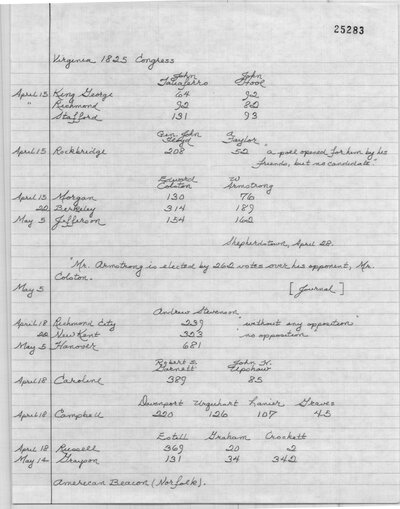 25283
Virginia 1825 Congress
John Taliaferro John Hoof
April 15 King George 64 92
" Richmond 92 82
Stafford 131 93
Gen. John Floyd A. Taylor
April 15 Rockbridge 208 52 "a poll opened for him by his
friends, but no candidate."
Edward Colston W Armstrong
April 15 Morgan 130 76
22 Berkeley 314 189
May 5 Jefferson 154 162
Shepherdstown, April 28.
"Mr. Armstrong is elected by 262 votes over his opponent, Mr.
Colston.
May 5 [Journal]
Andrew Stevenson
April 18 Richmond City 239 "without any opposition"
22 New Kent 353 "no opposition"
May 5 Hanover 681
Robert S. Garnett John H. Upshaw
April 18 Caroline 389 85
Davenport Urquhart Lanier Graves
April 18 Campbell 220 126 107 45
Estell Graham Crockett
April 18 Russell 369 20 2
May 14 Grayson 131 34 342
American Beacon (Norfolk).